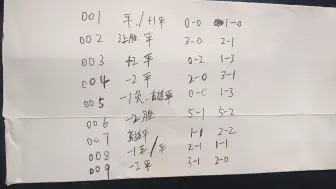 001 平/+1平 0-0 1-0
002 让胜 平 3-0 2-1
003 +2 平 0-2 1-3
004 -2 平 2-0 3-1
005 -1负.直接平 0-0 1-3
006 -2胜 5-1 5-2
007 直接平 1-1 2-2
008 -1平/平 2-1 1-1
009 -2平 3-1 2-0